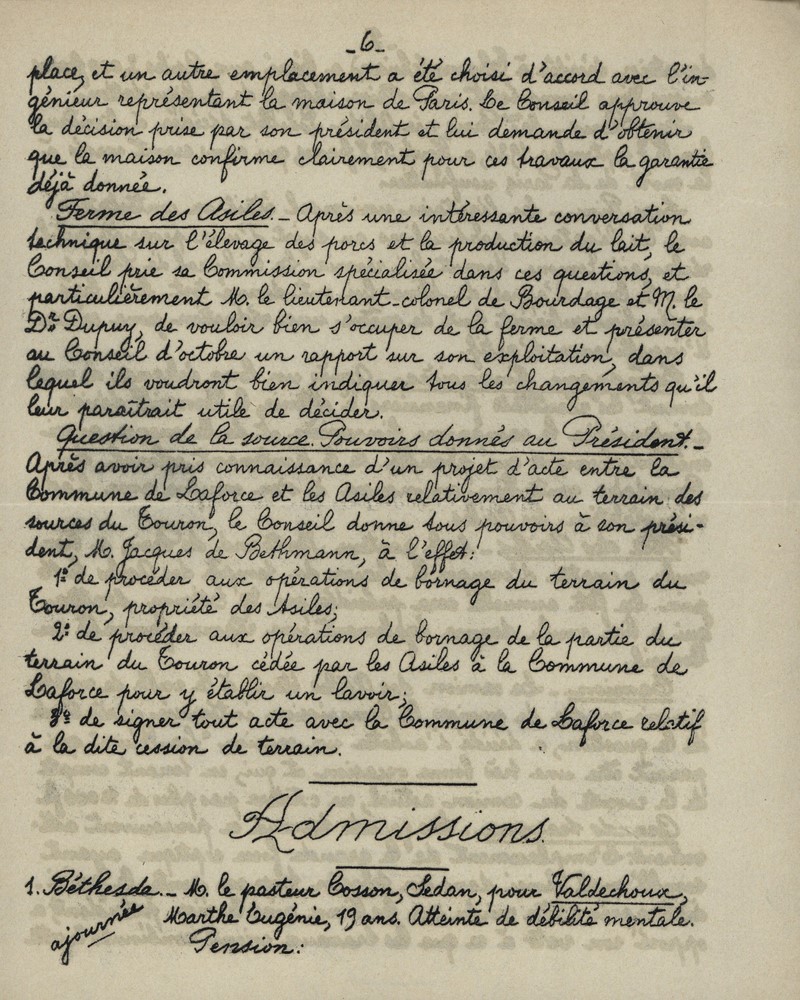 _6_
place, et un autre emplacement a été choisi d'accord avec l'in-
génieur représentant la maison de Paris. Le Conseil approuve
la décision prise par son président et lui demande d'obtenir
que la maison confirme clairement pour ces travaux la garantie
déjà donnée.
Ferme des Asiles._ Après une intéressante conversation
technique sur l'élevage des porcs et la production du lait, le
Conseil prie sa Commission spécialisée dans ces questions, et
particulièrement M. le lieutenant-colonel de Bourdage et M. le
Dr. Dupuy, de vouloir bien s'occuper de la ferme et présenter
au Conseil d'octobre un rapport sur son exploitation, dans
lequel ils voudront bien indiquer tous les changements qu'il
leur paraîtrait utile de décider.
Question de la source. Pouvoirs donnés au Président._
Après avoir pris connaissance d'un projet d'acte entre la
Commune de Laforce et les Asiles relativement au terrain des
sources du Touron, le Conseil donne tous pouvoirs à son prési-
dent, M. Jacques de Bethmann, à l'effet:
1º de procéder aux opérations de bornage du terrain du
Touron, propriété des Asiles;
2º de procéder aux opérations de bornage de la partie du
terrain du Touron cédée par les Asiles à la Commune de
Laforce pour y établir un lavoir;
3º de signer tout acte avec la Commune de Laforce relatif
à la dite cession de terrain.
Admissions.
1. Béthesda._ M. le pasteur Cosson, Sedan, pour Valdechoux,
Marthe Eugénie, 19 ans. Atteinte de débilité mentale.
ajournée
Pension: